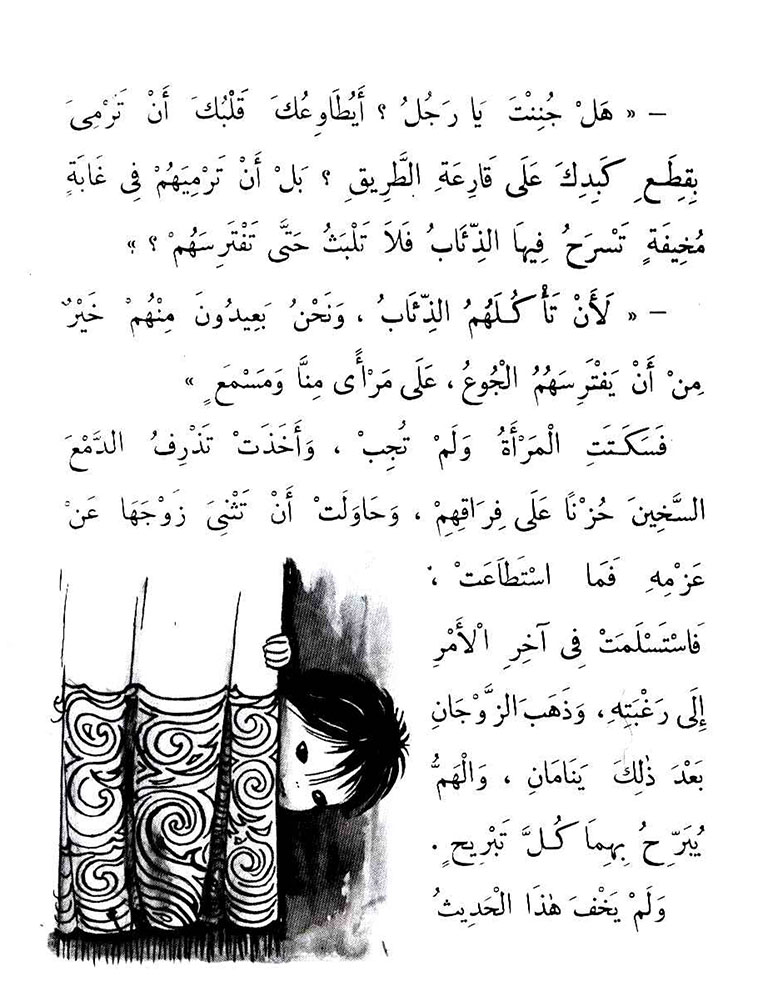 — « هَلْ جُنِنْتَ يَا رَجُلُ ؟ أَيُطَاوِعُكَ قَلْبُكَ أَنْ تَرْمِىَ
بِقِطَعِ كَبِدِكَ عَلَى قَارِعَةِ الطَّرِيقِ ؟ بَلْ أَنْ تَرْمِيَهُمْ فِى غَابَةٍ
مُخِيفَةٍ تَسْرَحُ فِيهَا الذِّئَابُ فَلاَ تَلْبَثُ حَتَّى تَفْتَرِسَهُمْ ؟ »
— « لَأَنْ تَأْكُلَهُمُ الذِّئَابُ ، وَنَحْنُ بَعِيدُونَ مِنْهُمْ خَيْرٌ
مِنْ أَنْ يَفْتَرِسَهُمُ الْجُوعُ ، عَلَى مَرْأًى مِنَّا وَمَسْمَعٍ »
فَسَكَتَتِ الْمَرْأَةُ وَلَمْ تُجِبْ ، وَأَخَذَتْ تَذْرِفُ الدَّمْعَ
السَّخِينَ حُزْنًا عَلَى فِرَاقِهِمْ ، وَحَاوَلَتْ أَنْ تَثْنِىَ زَوْجَهَا عَنْ
عَزْمِهِ فَمَا اسْتَطَاعَتْ ،
فَاسْتَسْلَمَتْ فِى آخِرِ الْأَمْرِ
إِلَى رَغْبَتِهِ ، وَذَهَبَ الزَّوْجَانِ
بَعْدَ ذٰلِكَ يَنَامَانِ ، وَالْهَمُّ
يُبَرِّحُ بِهِمَا كُلَّ تَبْرِيحٍ .
وَلَمْ يَخْفَ هٰذَا الْحَدِيثُ